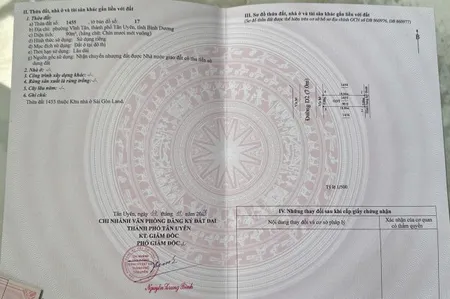 II. Thửa đất, nhà ở và tài sản khác gắn liền với đất
1. Thửa đất:
a) Thửa đất số: 1455 , tờ bản đồ số: 17
b) Địa chỉ: phường Vĩnh Tân, thành phố Tân Uyên, tỉnh Bình Dương
c) Diện tích: 90m², (bằng chữ: Chín mươi mét vuông)
d) Hình thức sử dụng: Sử dụng riêng
đ) Mục đích sử dụng: Đất ở tại đô thị
e) Thời hạn sử dụng: Lâu dài
g) Nguồn gốc sử dụng: Nhận chuyển nhượng đất được Nhà nước giao đất có thu tiền sử dụng đất
2. Nhà ở: -/-
3. Công trình xây dựng khác: -/-
4. Rừng sản xuất là rừng trồng: -/-
5. Cây lâu năm: -/-
6. Ghi chú:
Thửa đất 1455 thuộc Khu nhà ở Sài Gòn Land.
Tân Uyên, ngày
CHI NHÁNH VĂN PHÒNG ĐĂNG KÝ ĐẤT ĐAI
THÀNH PHỐ TÂN UYÊN
KT. GIÁM ĐỐC
PHÓ GIÁM ĐỐC
III. Sơ đồ thửa đất, nhà ở và tài sản khác gắn liền với đất
Đường D2 (7.0m)
Tỉ lệ 1/500
IV. Những thay đổi sau khi cấp giấy chứng nhận
Nội dung thay đổi và cơ sở pháp lý
Xác nhận của cơ quan
có thẩm quyền